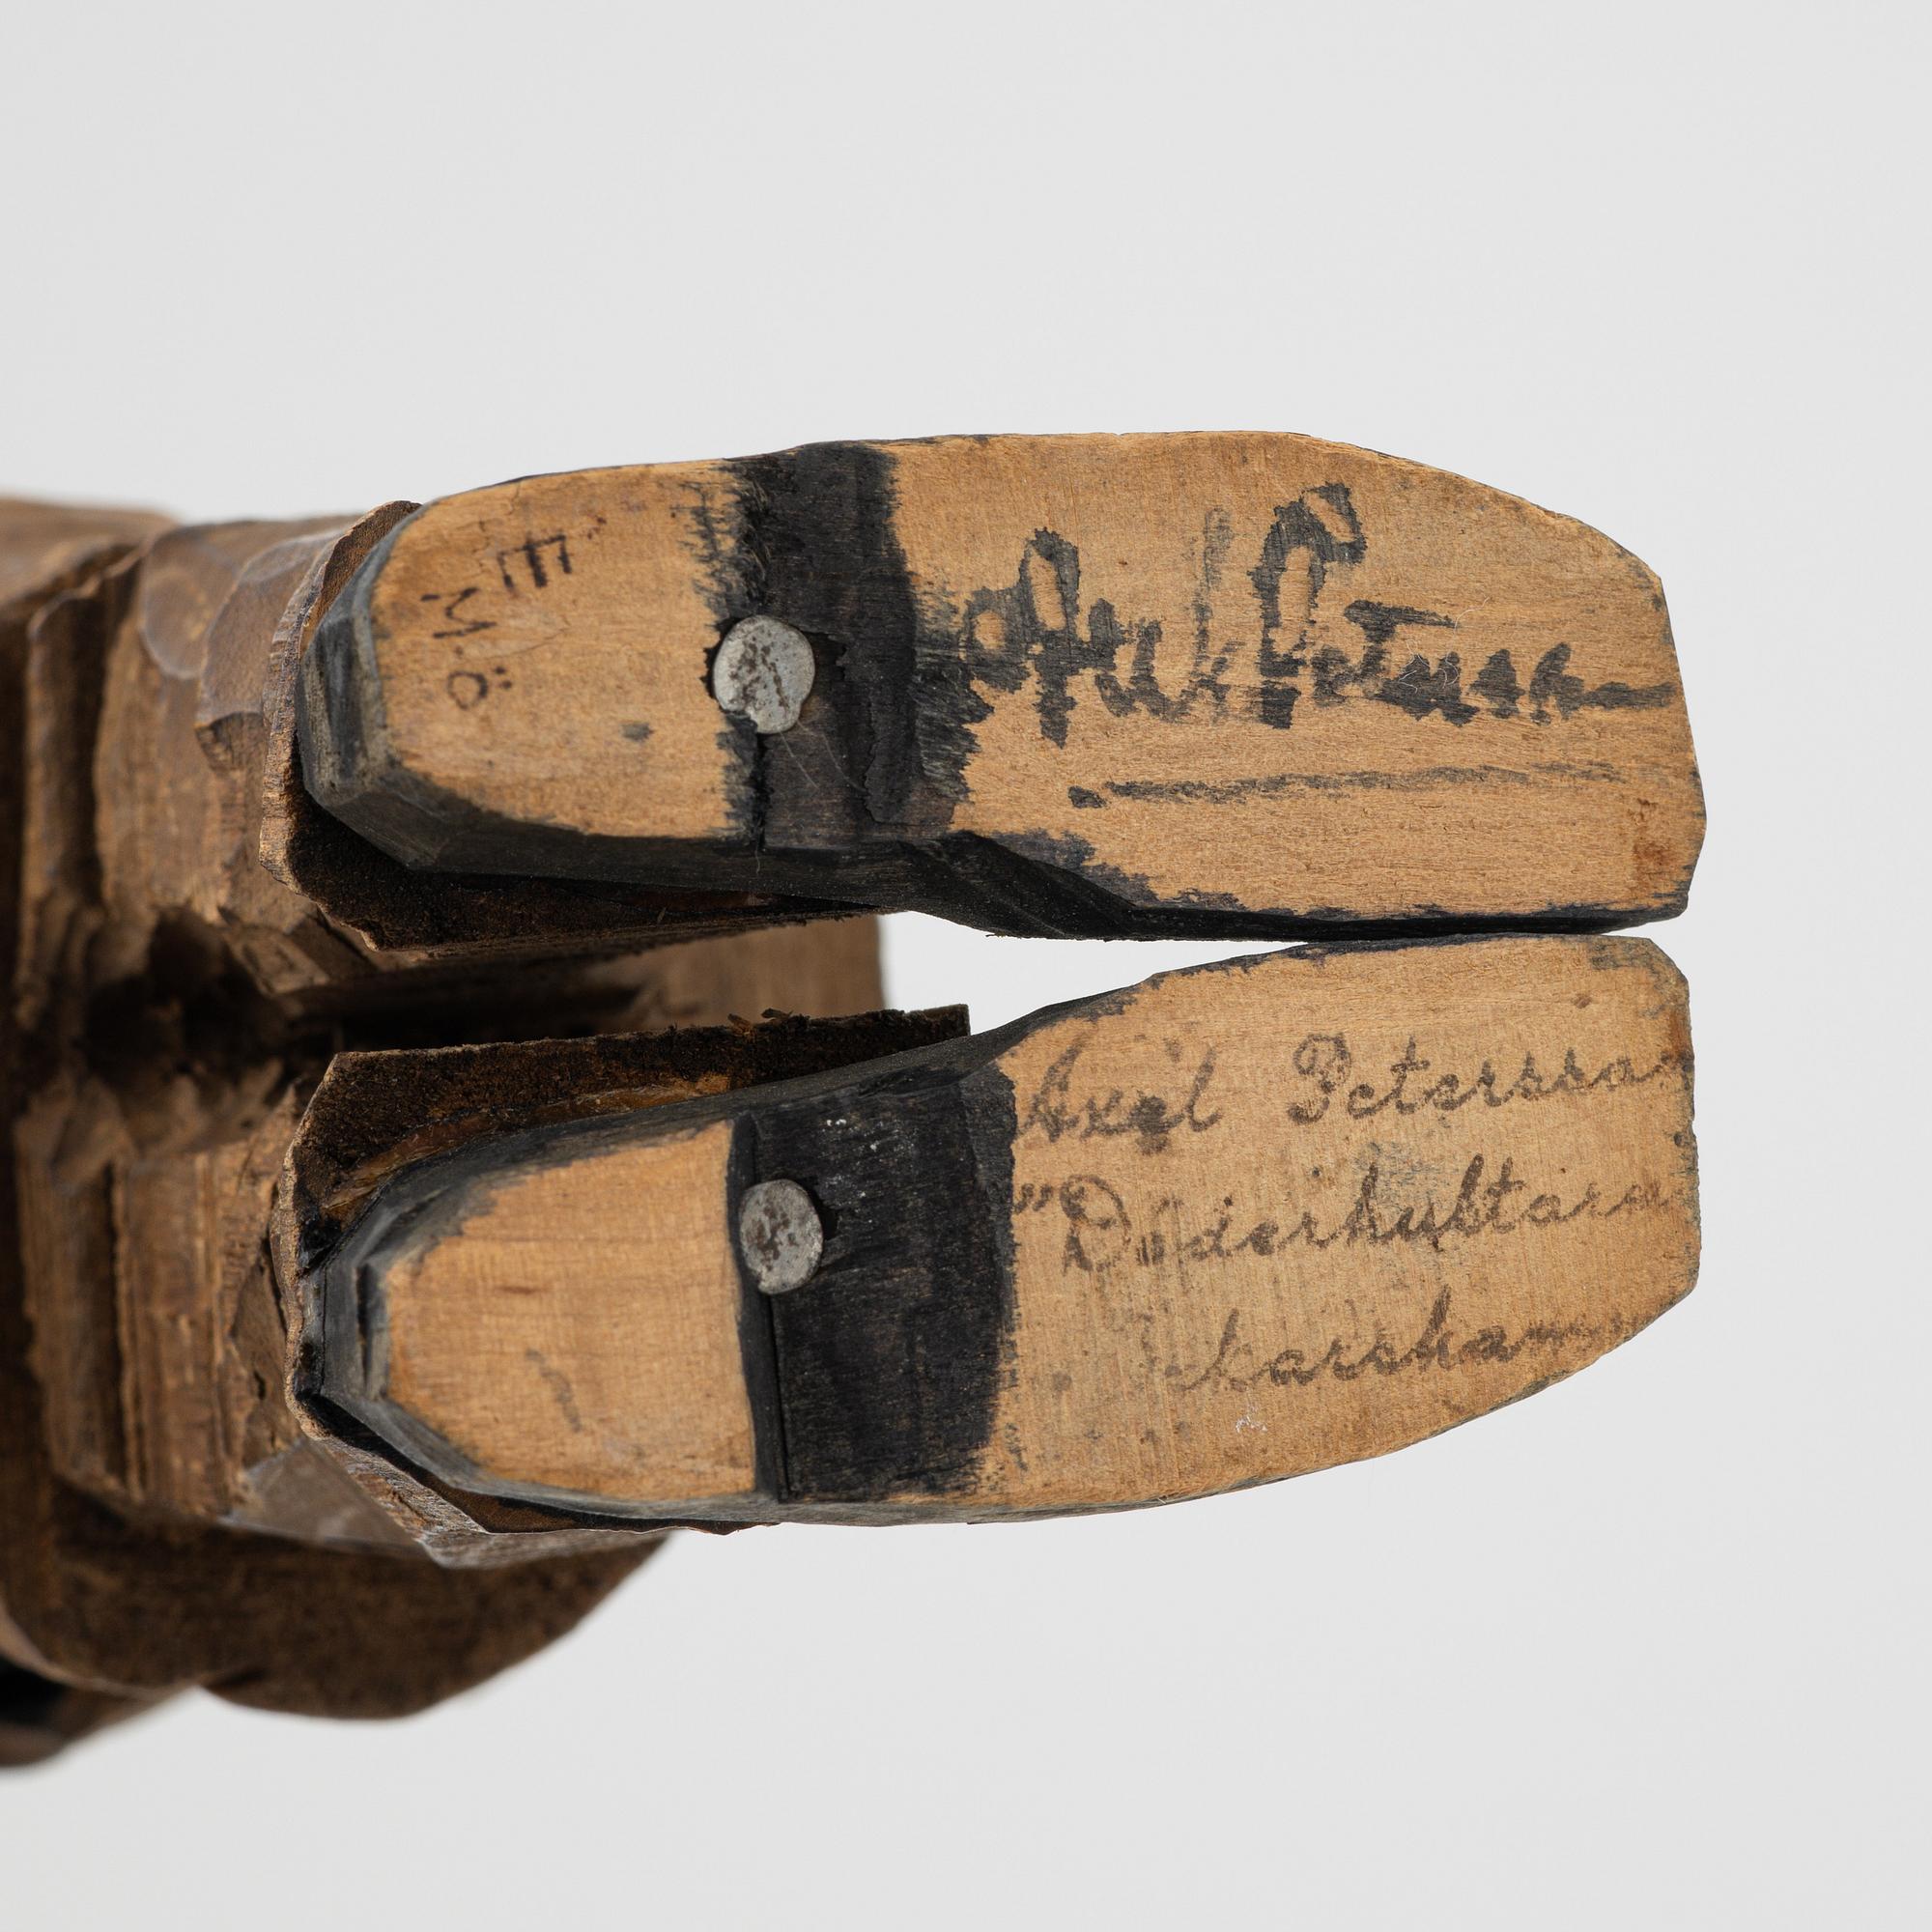 E
M.Ö
Axel Petersson
Axel Petersson
"Döderhultaren
karshamn